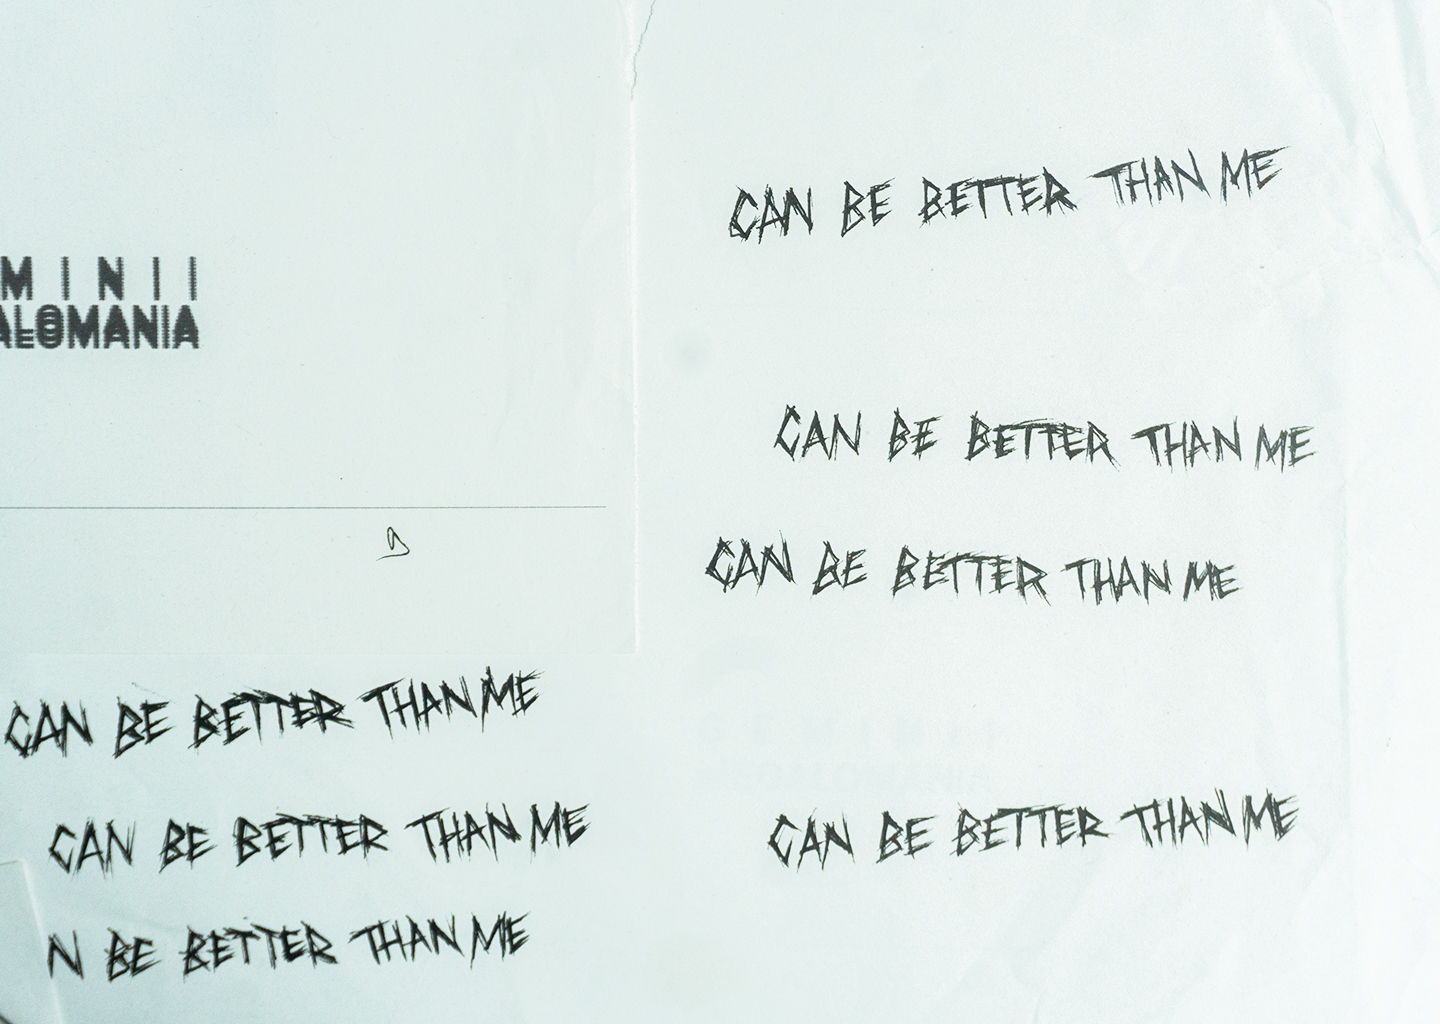 MINII
ALOMANIA
CAN BE BETTER THAN ME
CAN BE BETTER THAN ME
CAN BE BETTER THAN ME
CAN BE BETTER THAN ME
CAN BE BETTER THAN ME
N BE BETTER THAN ME
CAN BE BETTER THAN ME